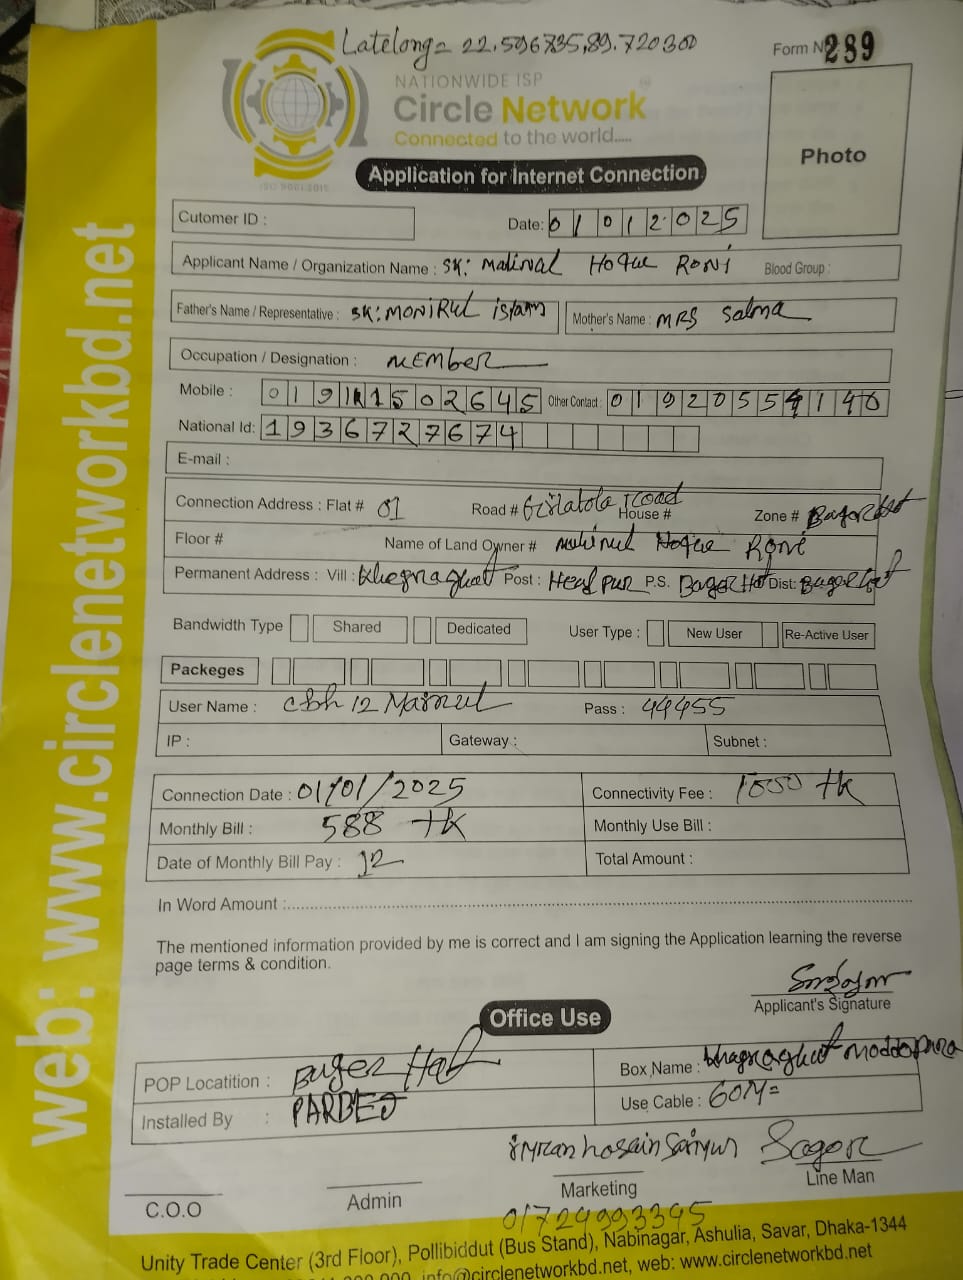 Latelong= 22.596735,89.720300
Form N 289
NATIONWIDE ISP
Circle Network
Connected to the world.....
ISO 9001:2015
Application for Internet Connection
Photo
Cutomer ID :
Date: 01012025
Applicant Name / Organization Name : SK: Mainal HoQue RONI Blood Group :
Father's Name / Representative : SK: MONIRUL islam Mother's Name : MRS Salma
Occupation / Designation : MEMbeR
Mobile : 01911502645 Other Contact : 01920554140
National Id: 1936727674
E-mail :
Connection Address : Flat # 01 Road # Road House # Zone # BagerHat
Floor # Name of Land Owner # Hoque Roni
Permanent Address : Vill : Post : P.S. BagerHat Dist: BagerHat
Bandwidth Type Shared Dedicated User Type : New User Re-Active User
Packeges
User Name : cbh 12 Mainul Pass : 44455
IP : Gateway : Subnet :
Connection Date : 01/01/2025 Connectivity Fee : 1000 tk
Monthly Bill : 588 tk Monthly Use Bill :
Date of Monthly Bill Pay : 12 Total Amount :
In Word Amount :
The mentioned information provided by me is correct and I am signing the Application learning the reverse
page terms & condition.
Applicant's Signature
Office Use
POP Locatition : Bager Hat Box Name : moddopara
Installed By : PARBEJ Use Cable : 60M=
imran hosain Sagor
C.O.O Admin Marketing Line Man
01724993395
Unity Trade Center (3rd Floor), Pollibiddut (Bus Stand), Nabinagar, Ashulia, Savar, Dhaka-1344
info@circlenetworkbd.net, web: www.circlenetworkbd.net
web: www.circlenetworkbd.net